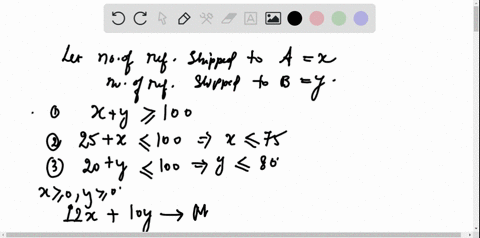 Let no. of ref. shipped to A = x
no. of ref. shipped to B = y.
① x+y ≥ 100
② 25+x ≤ 100 ⇒ x ≤ 75
③ 20+y ≤ 100 ⇒ y ≤ 80
x ≥ 0, y ≥ 0.
12x + 10y → M